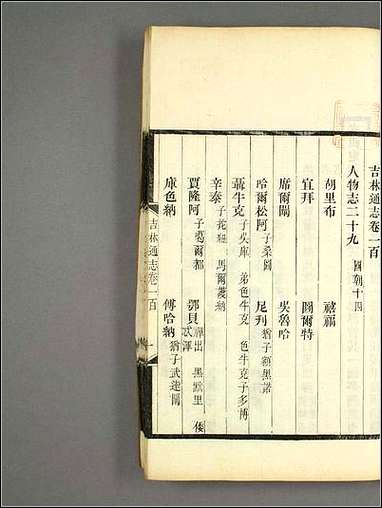 吉林通志卷一百
人物志二十九 國朝十四
胡里布 禧福
宜拜 圖爾特
席爾閟 吳魯哈
哈爾松阿 子桑圖 尼刋 猶子額黑諾
聶牛克 子吳庫 弟色牛克 色牛克子多博
辛泰 子 馬爾護納
賈隆阿 子葛爾都 鄂貝 忒渾
庫色納 傅哈納 猶子武達閟
吉林通志卷一百 一